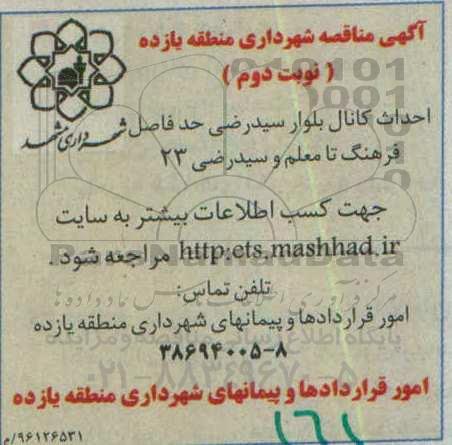 آگهی مناقصه شهرداری منطقه یازده
( نوبت دوم )
شهرداری مشهد
احداث کانال بلوار سیدرضی حد فاصل
فرهنگ تا معلم و سیدرضی ۲۳
جهت کسب اطلاعات بیشتر به سایت
http:ets.mashhad.ir مراجعه شود .
تلفن تماس:
امور قراردادها و پیمانهای شهرداری منطقه یازده
۳۸۶۹۴۰۰۵-۸
امور قراردادها و پیمانهای شهرداری منطقه یازده
۹۶۱۲۶۵۳۱/م
ParsNamadData
۰۲۱-۸۸۳۴۹۶۷۰-۵